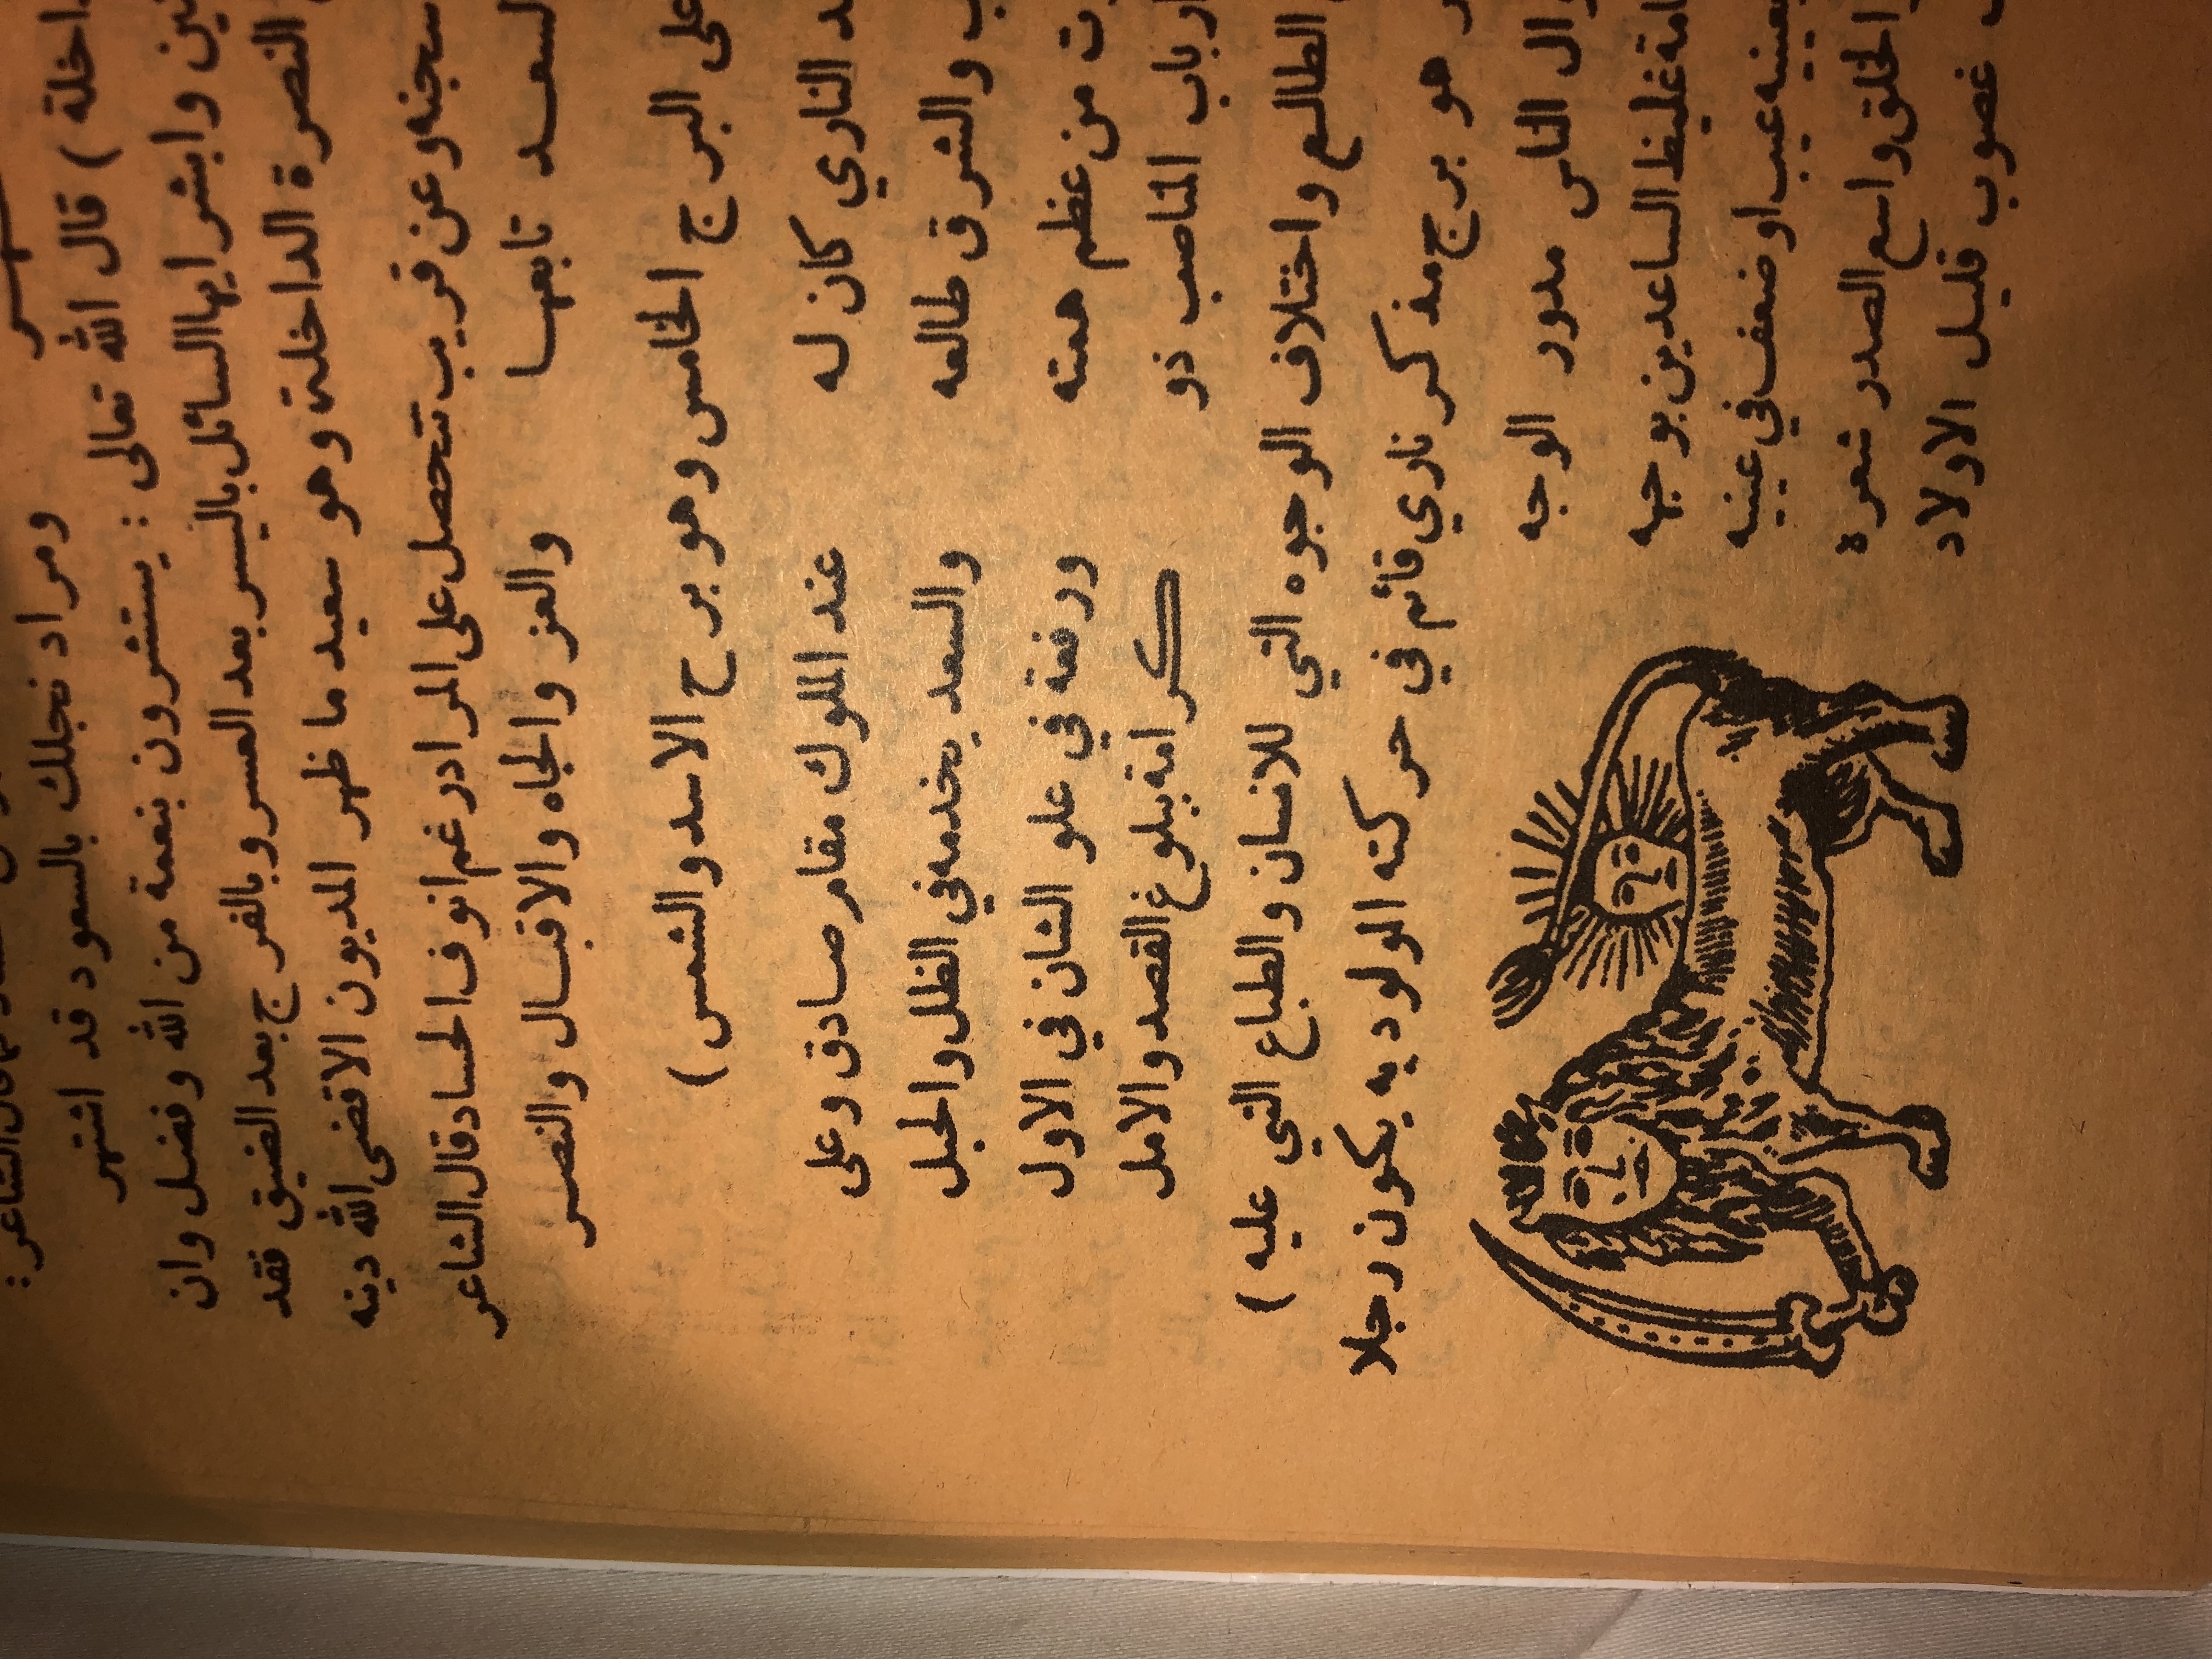 الشاعر :
ومراد نجلك بالسعود قد اشتهر
داخلة ) قال الله تعالى : يستشرون بنعمة من الله وفضل وان
وابشر ايها السائل باليسر بعد العسر وبالفرج بعد الضيق فقد
النصرة الداخلة وهو سعيد ما ظهر المديون الا قضى الله دينه
سجنه وعن قريب تتحصل على المراد رغم انوف الحساد قال الشاعر
لسعد تابعها والعز والجاه والاقبال والنصر
على البرج الخامس وهو برح الاسد والشمس )
الناري كان له عند الملوك مقام صادق وعلى
والشرق طالعه والسعد يخدمه في الظل والحبل
من عظم همته ورفعة في علو الشان في الاول
ارباب المناصب ذو كرامة يبلوغ القصد والامل
الطالع واختلاف الوجوه التي للانسان والطباع التي عليه )
هو برج مذكر ناري قائم في حركته الولود به يكون رجلا
الناس مدور الوجه
غليظ الساعدين بوجهه
عيب او ضعف في عينيه
الخلق واسع الصدر شعره
غضوب قليل الاولاد